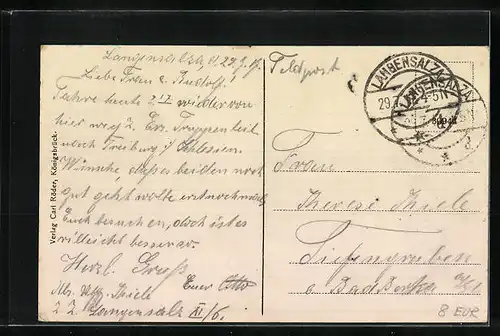 Langensalza, d. 29.7.17
Liebe Frau u. Rudolf.
Fahre heute wieder von
hier weg z. Ers. Truppenteil
nach Freiburg i/ Schlesien.
Wünsche, dass es beiden noch
gut geht wollte erst nochmals
Euch besuchen, doch ist es
vielleicht besser so.
Herzl. Gruß
Euer Otto
Abs. Uffz. Thiele
z. Z. Langensalza XI/6.
Verlag Carl Röder, Königsbrück.
Feldpost
LANGENSALZA
29.7.
LANGENSALZA
Frau
Therese Thiele
Tiefengruben
b. Bad Berka
8 EUR